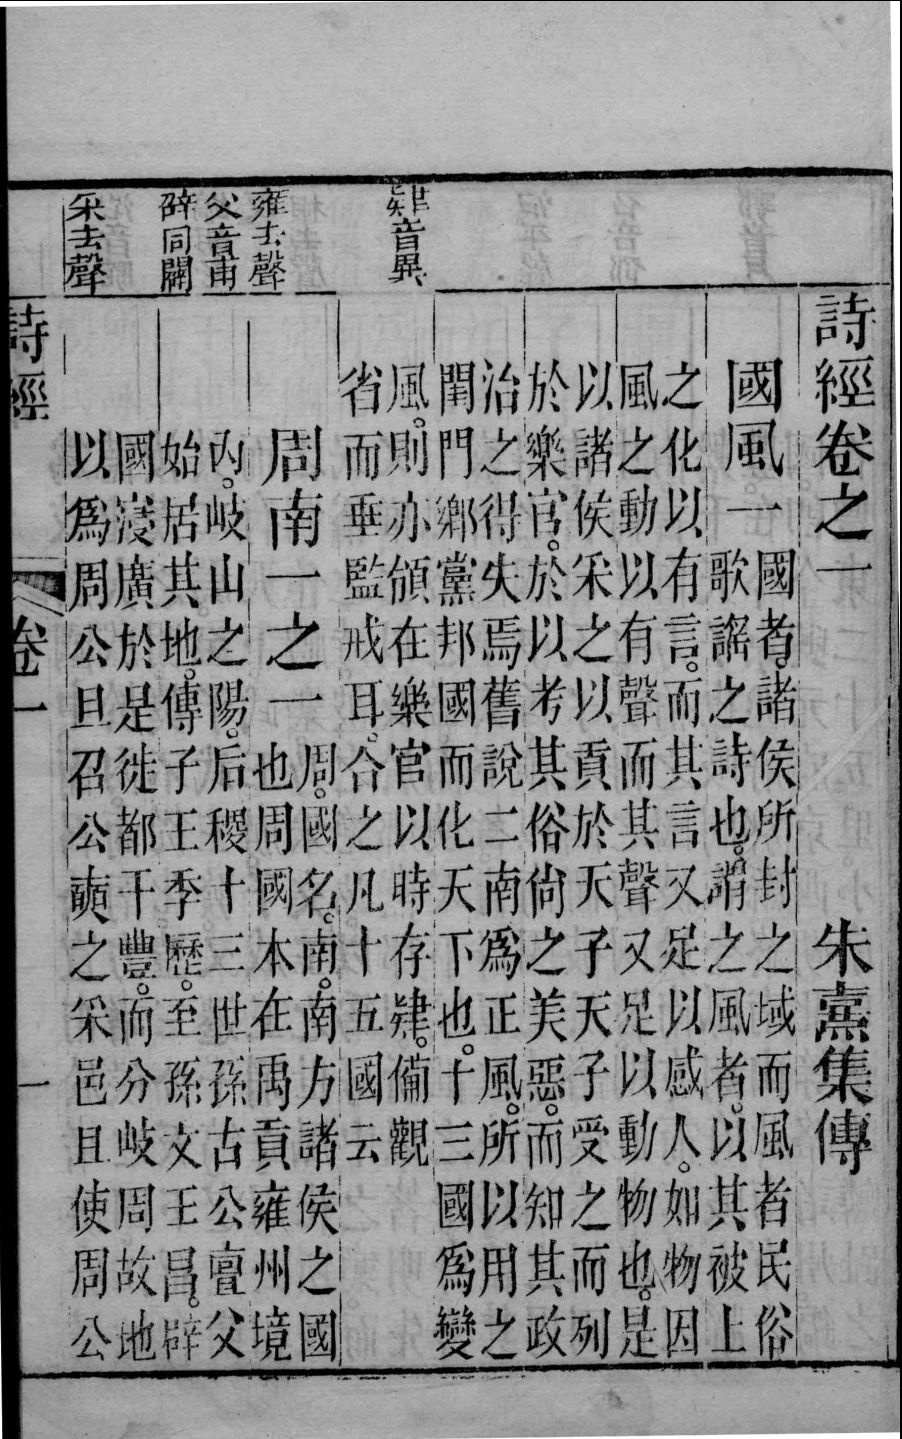 詩經卷之一
朱熹集傳
國風一
國者。諸侯所封之域而風者民俗
歌謠之詩也。謂之風者。以其被上
之化以有言。而其言又足以感人。如物因
風之動以有聲而其聲又足以動物也。是
以諸侯采之以貢於天子天子受之而列
於樂官。於以考其俗尙之美惡。而知其政
治之得失焉舊說二南爲正風。所以用之
閨門鄉黨邦國而化天下也。十三國爲變
風。則亦領在樂官以時存肄。備觀
省而垂監戒耳。合之凡十五國云
周南一之一
周。國名。南。南方諸侯之國
也周國本在禹貢雍州境
內。岐山之陽。后稷十三世孫古公亶父
始居其地。傳子王季歷。至孫文王昌。辟
國寖廣於是徙都于豐。而分岐周故地
以爲周公旦召公奭之采邑且使周公
肄音異
雍去聲
父音甫
辟同闢
采去聲
詩經
卷一
一